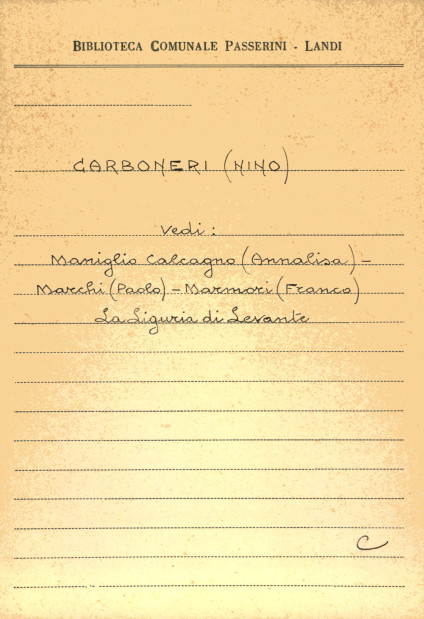 BIBLIOTECA COMUNALE PASSERINI - LANDI
CARBONERI (NINO)
Vedi:
Maniglio Calcagno (Annalisa) -
Marchi (Paolo) - Marmori (Franco)
La Liguria di Levante
C